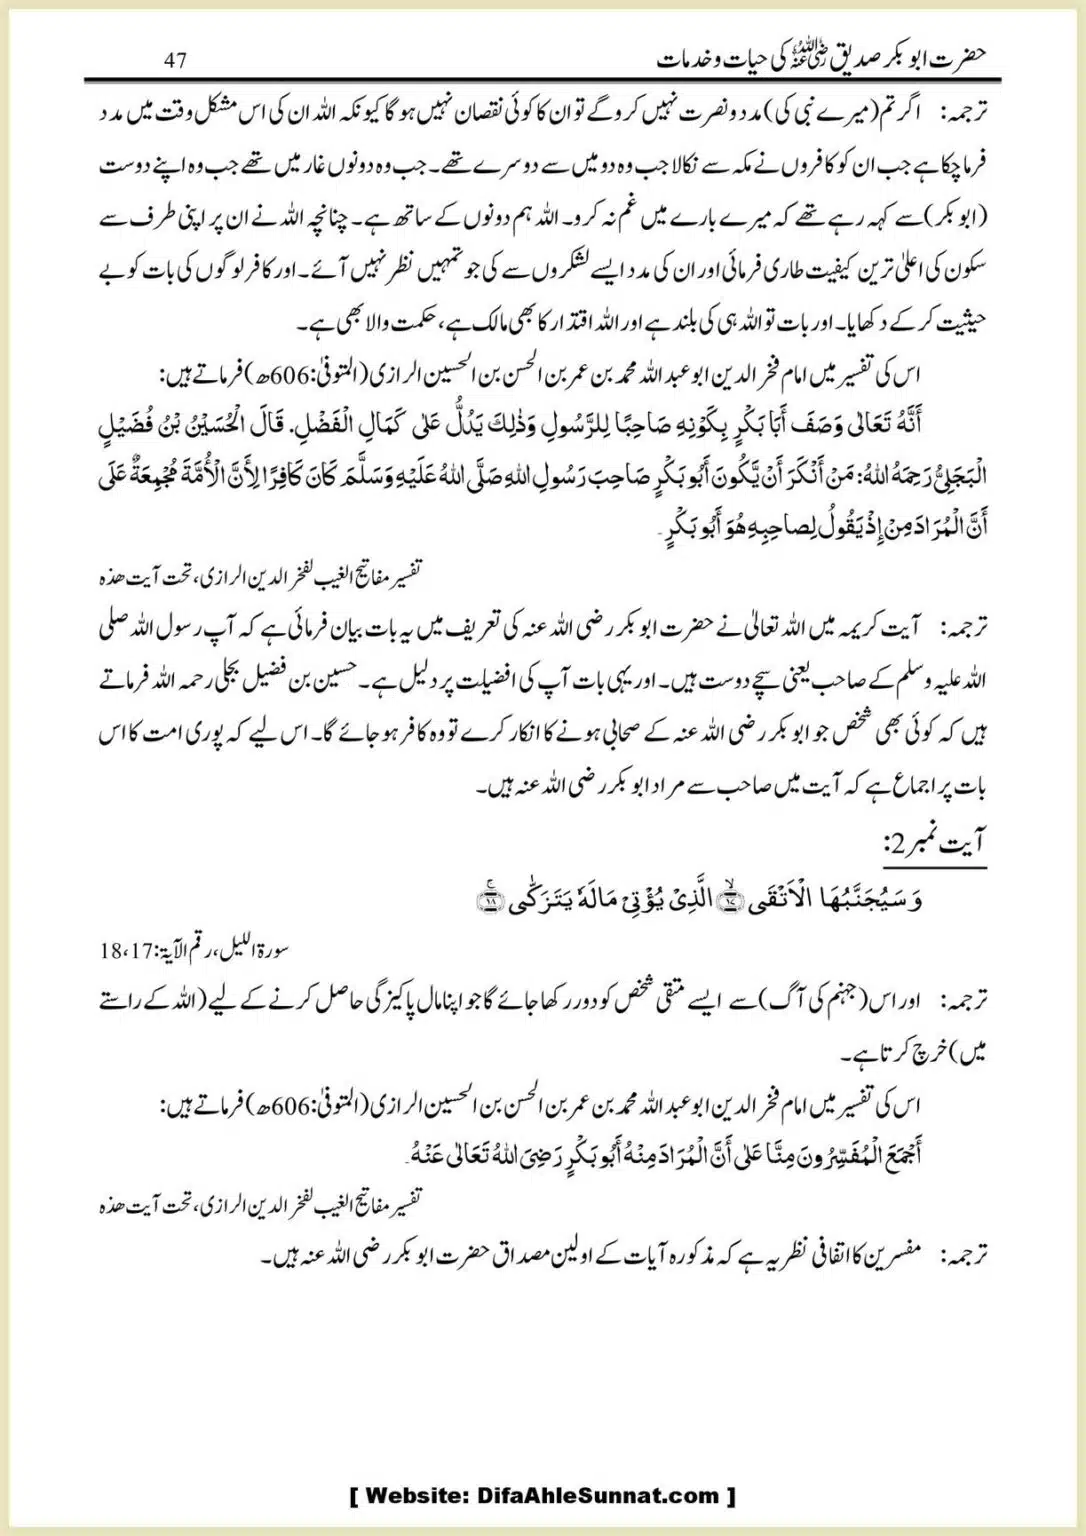 حضرت ابو بکر صدیق رضی اللہ عنہ کی حیات و خدمات 47
ترجمہ: اگر تم (میرے نبی کی) مدد و نصرت نہیں کرو گے تو ان کا کوئی نقصان نہیں ہو گا کیونکہ اللہ ان کی اس مشکل وقت میں مدد
فرما چکا ہے جب ان کو کافروں نے مکہ سے نکالا جب وہ دو میں سے دوسرے تھے۔ جب وہ دونوں غار میں تھے جب وہ اپنے دوست
(ابو بکر) سے کہہ رہے تھے کہ میرے بارے میں غم نہ کرو۔ اللہ ہم دونوں کے ساتھ ہے۔ چنانچہ اللہ نے ان پر اپنی طرف سے
سکون کی اعلیٰ ترین کیفیت طاری فرمائی اور ان کی مدد ایسے لشکروں سے کی جو تمہیں نظر نہیں آئے۔ اور کافر لوگوں کی بات کو بے
حیثیت کر کے دکھایا۔ اور بات تو اللہ ہی کی بلند ہے اور اللہ اقتدار کا بھی مالک ہے، حکمت والا بھی ہے۔
اس کی تفسیر میں امام فخر الدین ابو عبد اللہ محمد بن عمر بن الحسن بن الحسین الرازی (المتوفیٰ: 606ھ) فرماتے ہیں:
أَنَّهُ تَعَالٰى وَصَفَ أَبَا بَكْرٍ بِكَوْنِهٖ صَاحِبًا لِلرَّسُولِ وَذٰلِكَ يَدُلُّ عَلٰى كَمَالِ الْفَضْلِ. قَالَ الْحُسَيْنُ بْنُ فُضَيْلٍ
الْبَجَلِيُّ رَحِمَهُ اللهُ: مَنْ أَنْكَرَ أَنْ يَّكُونَ أَبُو بَكْرٍ صَاحِبَ رَسُولِ اللهِ صَلَّى اللهُ عَلَيْهِ وَسَلَّمَ كَانَ كَافِرًا لِأَنَّ الْأُمَّةَ مُجْمِعَةٌ عَلٰى
أَنَّ الْمُرَادَ مِنْ إِذْ يَقُولُ لِصاحِبِهٖ هُوَ أَبُو بَكْرٍ۔
تفسیر مفاتیح الغیب لفخر الدین الرازی، تحت آیت ھذہ
ترجمہ: آیت کریمہ میں اللہ تعالیٰ نے حضرت ابو بکر رضی اللہ عنہ کی تعریف میں یہ بات بیان فرمائی ہے کہ آپ رسول اللہ صلی
اللہ علیہ وسلم کے صاحب یعنی سچے دوست ہیں۔ اور یہی بات آپ کی افضلیت پر دلیل ہے۔ حسین بن فضیل بجلی رحمہ اللہ فرماتے
ہیں کہ کوئی بھی شخص جو ابو بکر رضی اللہ عنہ کے صحابی ہونے کا انکار کرے تو وہ کافر ہو جائے گا۔ اس لیے کہ پوری امت کا اس
بات پر اجماع ہے کہ آیت میں صاحب سے مراد ابو بکر رضی اللہ عنہ ہیں۔
آیت نمبر 2:
وَسَيُجَنَّبُهَا الْاَتْقَى ﴿ۙ۱۷﴾ الَّذِىْ يُؤْتِىْ مَالَهٗ يَتَزَكّٰى ﴿ۚ۱۸﴾
سورۃ اللیل، رقم الآیۃ: 17، 18
ترجمہ: اور اس (جہنم کی آگ) سے ایسے متقی شخص کو دور رکھا جائے گا جو اپنا مال پاکیزگی حاصل کرنے کے لیے (اللہ کے راستے
میں) خرچ کرتا ہے۔
اس کی تفسیر میں امام فخر الدین ابو عبد اللہ محمد بن عمر بن الحسن بن الحسین الرازی (المتوفیٰ: 606ھ) فرماتے ہیں:
أَجْمَعَ الْمُفَسِّرُونَ مِنَّا عَلٰى أَنَّ الْمُرَادَ مِنْهُ أَبُو بَكْرٍ رَضِيَ اللهُ تَعَالٰى عَنْهُ۔
تفسیر مفاتیح الغیب لفخر الدین الرازی، تحت آیت ھذہ
ترجمہ: مفسرین کا اتفاقی نظریہ ہے کہ مذکورہ آیات کے اولین مصداق حضرت ابو بکر رضی اللہ عنہ ہیں۔
[ Website: DifaAhleSunnat.com ]